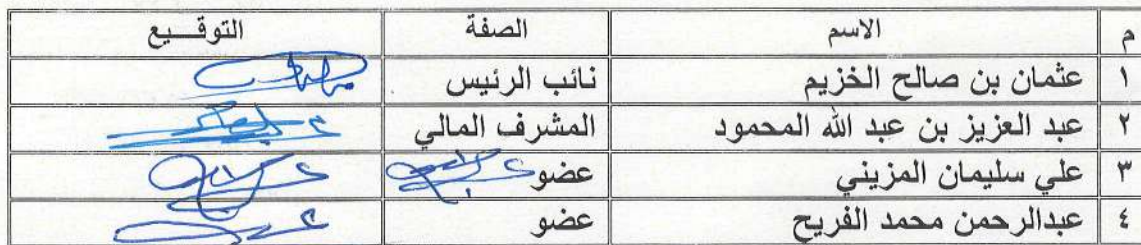 م الاسم الصفة التوقـــيع
١ عثمان بن صالح الخزيم نائب الرئيس
٢ عبد العزيز بن عبد الله المحمود المشرف المالي
٣ علي سليمان المزيني عضو
٤ عبدالرحمن محمد الفريح عضو